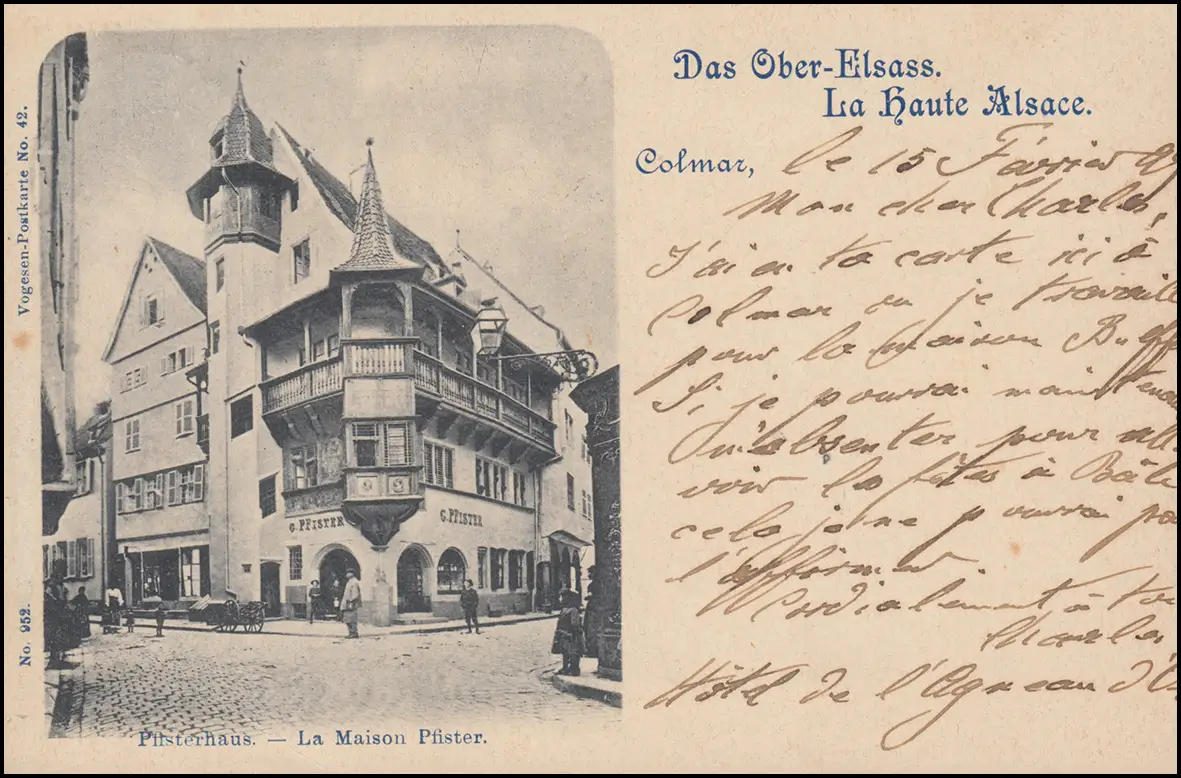 Das Ober-Elsass.
La Haute Alsace.
Colmar, le 15 Février 9
Mon cher Charles,
J'ai eu ta carte ici à
Colmar ou je travaille
pour la maison
Si, je pourrai maintenant
m'absenter pour all
voir la fêtes à Bâle
cela je ne pourrai pa
l'affirmer
Cordialement à toi
Charles
Hôtel de l'Agneau d'
G. PFISTER
G. PFISTER
Pfisterhaus. — La Maison Pfister.
Vogesen-Postkarte No. 42.
No. 952.